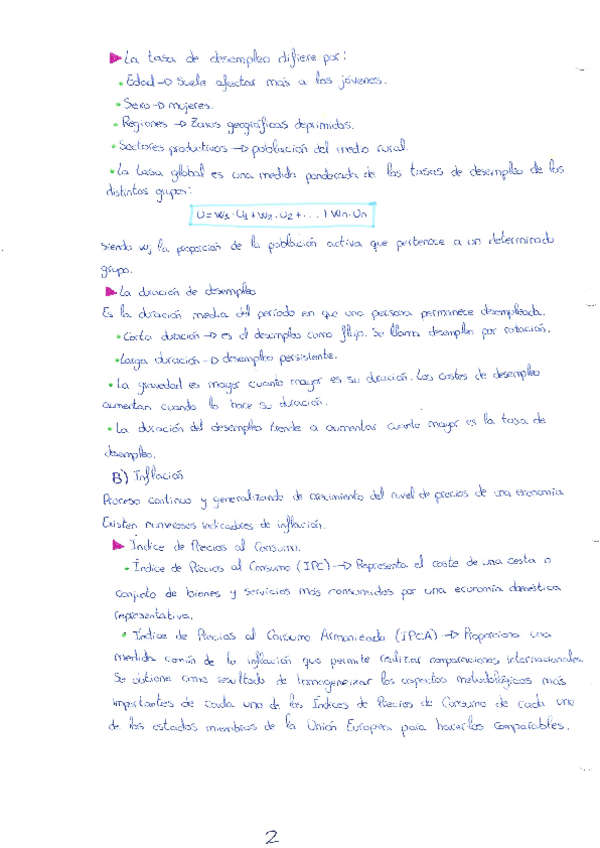 ▶ La tasa de desempleo difiere por:
• Edad → Suele afectar más a los jóvenes.
• Sexo → mujeres.
• Regiones → Zonas geográficas deprimidas.
• Sectores productivos → población del medio rural.
• La tasa global es una medida ponderada de las tasas de desempleo de los
distintos grupos:
U = w1 · U1 + w2 · U2 + ... + wn · Un
siendo wj la proporción de la población activa que pertenece a un determinado
grupo.
▶ La duración de desempleo
Es la duración media del período en que una persona permanece desempleada.
• Corta duración → es el desempleo como flujo. Se llama desempleo por rotación.
• Larga duración → desempleo persistente.
• La gravedad es mayor cuanto mayor es su duración. Los costes de desempleo
aumentan cuando lo hace su duración.
• La duración del desempleo tiende a aumentar cuanto mayor es la tasa de
desempleo.
B) Inflación
Proceso continuo y generalizando de crecimiento del nivel de precios de una economía
Existen numerosos indicadores de inflación.
▶ Índice de Precios al Consumo.
• Índice de Precios al Consumo (IPC) → Representa el coste de una cesta o
conjunto de bienes y servicios más consumidos por una economía doméstica
representativa.
• Índice de Precios al Consumo Armonizado (IPCA) → Proporciona una
medida común de la inflación que permite realizar comparaciones internacionales.
Se obtiene como resultado de homogeneizar los aspectos metodológicos más
importantes de cada uno de los Índices de Precios de Consumo de cada uno
de los estados miembros de la Unión Europea para hacerlos comparables.
2